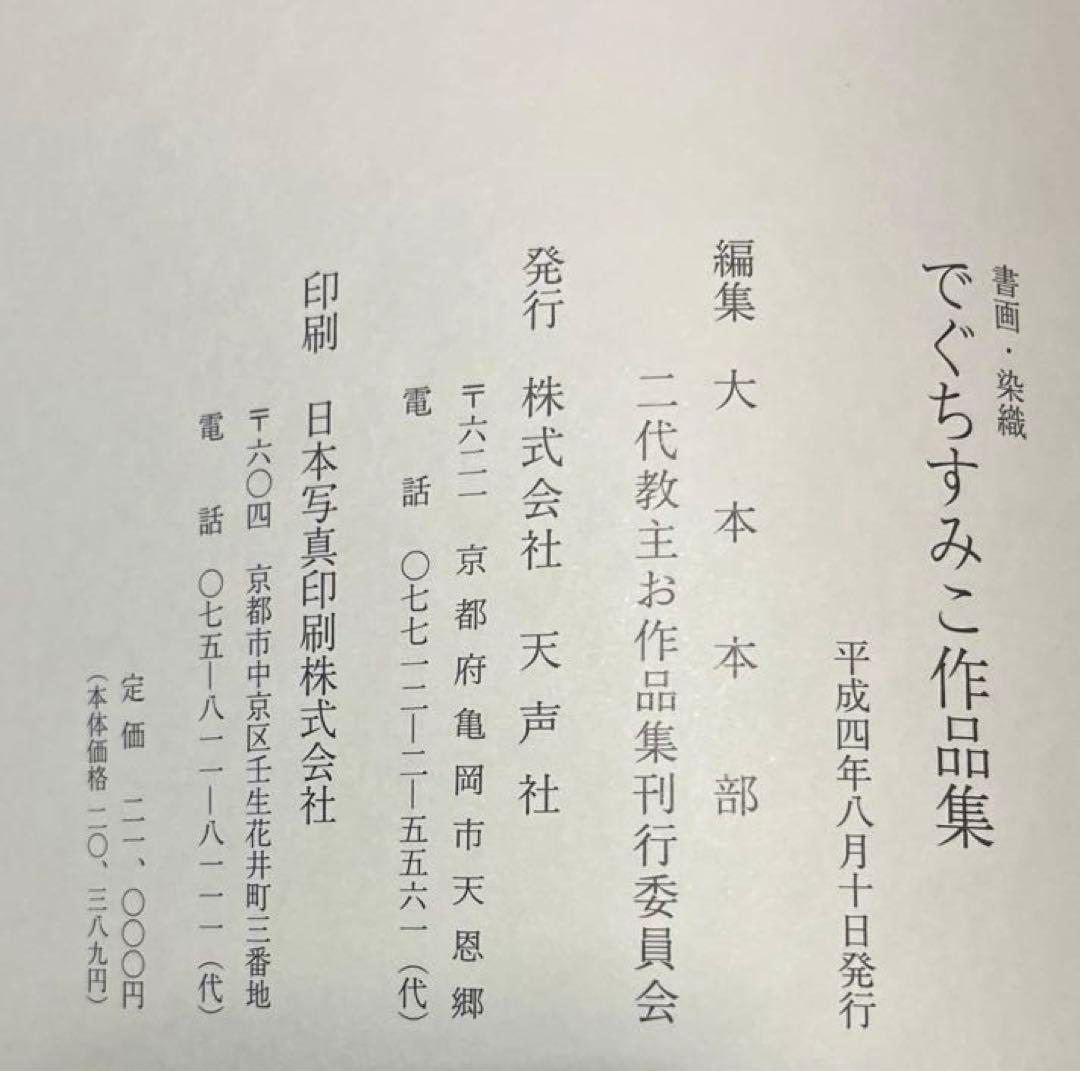 書画・染織
でぐちすみこ作品集
平成四年八月十日発行
編集 大本本部
二代教主お作品集刊行委員会
発行 株式会社 天声社
〒六二一 京都府亀岡市天恩郷
電話 〇七七一二―二―五五六一(代)
印刷 日本写真印刷株式会社
〒六〇四 京都市中京区壬生花井町三番地
電話 〇七五―八一一―八一一一(代)
定価 二一、〇〇〇円
(本体価格二〇、三八九円)